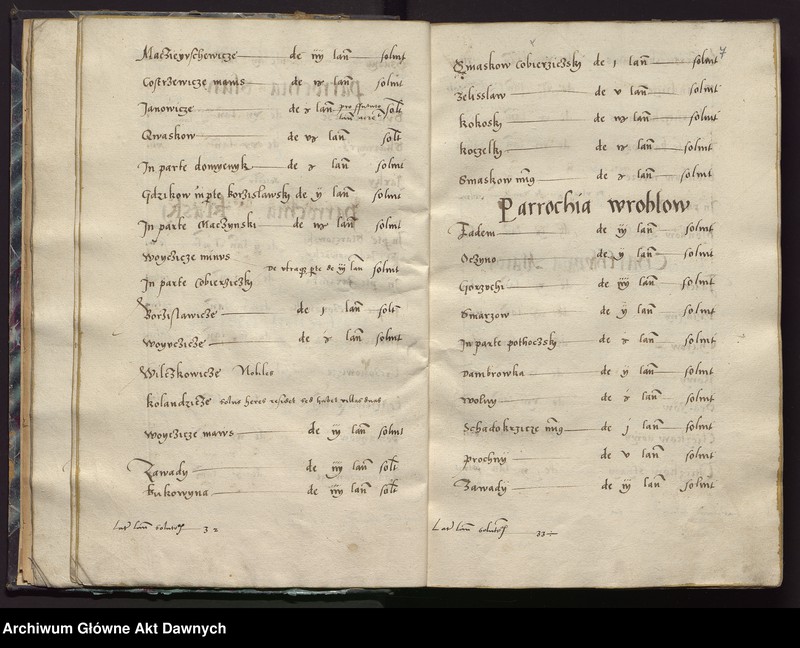 Maczieyschewicze de iiij lan̄ solvit
Costrzewicze maius de lan̄ solvit
Janowicze de lan̄ solt
Gwaskow de lan̄ solt
In parte domyenyk de lan̄ solvit
Gdzikow in pte borzislawski de ij lan̄ solvit
In parte Maczynski de lan̄ solvit
Woyczicze minus
De vtraqz pte de iij lan̄ solvit
In parte Cobierziczki
Borzislawicze de j lan̄ solt
Woyczicze de lan̄ solvit
Wilczkowicze Nobiles
Kolandzicze solus heres residet sed habet villas duas
Woyczicze maius de iij lan̄ solvit
Zawady de iij lan̄ solt
Bukowyna de iiij lan̄ solt
Lat lan̄ solut 32
7
Smaskow Cobierziczki de j lan̄ solvit
Zelisslaw de v lan̄ solvit
Kokoski de lan̄ solvit
Koczelki de lan̄ solvit
Smaskow de lan̄ solvit
Parrochia wroblow
Eadem de iij lan̄ solvit
Oczyno de lan̄ solvit
Gorzuchi de iiij lan̄ solvit
Smarzow de ij lan̄ solvit
In parte pothoczski de lan̄ solvit
Dambrowka de ij lan̄ solvit
Wolny de lan̄ solvit
Schadokrzicze de j lan̄ solvit
Prochny de v lan̄ solvit
Zawady de iij lan̄ solvit
Lat lan̄ solut 33
Archiwum Główne Akt Dawnych